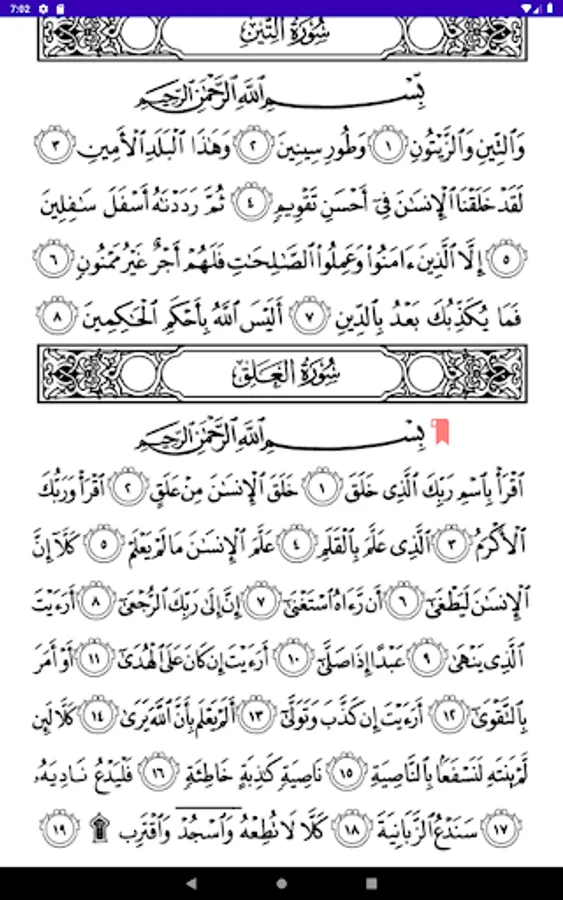 7:02
سُورَةُ التِّينِ
بِسْمِ اللَّهِ الرَّحْمَٰنِ الرَّحِيمِ
وَالتِّينِ وَالزَّيْتُونِ ١ وَطُورِ سِينِينَ ٢ وَهَٰذَا الْبَلَدِ الْأَمِينِ ٣
لَقَدْ خَلَقْنَا الْإِنسَٰنَ فِىٓ أَحْسَنِ تَقْوِيمٍ ٤ ثُمَّ رَدَدْنَٰهُ أَسْفَلَ سَٰفِلِينَ
٥ إِلَّا الَّذِينَ ءَامَنُوا۟ وَعَمِلُوا۟ الصَّٰلِحَٰتِ فَلَهُمْ أَجْرٌ غَيْرُ مَمْنُونٍ ٦
فَمَا يُكَذِّبُكَ بَعْدُ بِالدِّينِ ٧ أَلَيْسَ اللَّهُ بِأَحْكَمِ الْحَٰكِمِينَ ٨
سُورَةُ العَلَقِ
بِسْمِ اللَّهِ الرَّحْمَٰنِ الرَّحِيمِ
اقْرَأْ بِاسْمِ رَبِّكَ الَّذِى خَلَقَ ١ خَلَقَ الْإِنسَٰنَ مِنْ عَلَقٍ ٢ اقْرَأْ وَرَبُّكَ
الْأَكْرَمُ ٣ الَّذِى عَلَّمَ بِالْقَلَمِ ٤ عَلَّمَ الْإِنسَٰنَ مَا لَمْ يَعْلَمْ ٥ كَلَّآ إِنَّ
الْإِنسَٰنَ لَيَطْغَىٰٓ ٦ أَن رَّءَاهُ اسْتَغْنَىٰٓ ٧ إِنَّ إِلَىٰ رَبِّكَ الرُّجْعَىٰٓ ٨ أَرَءَيْتَ
الَّذِى يَنْهَىٰ ٩ عَبْدًا إِذَا صَلَّىٰٓ ١٠ أَرَءَيْتَ إِن كَانَ عَلَى الْهُدَىٰٓ ١١ أَوْ أَمَرَ
بِالتَّقْوَىٰٓ ١٢ أَرَءَيْتَ إِن كَذَّبَ وَتَوَلَّىٰٓ ١٣ أَلَمْ يَعْلَم بِأَنَّ اللَّهَ يَرَىٰ ١٤ كَلَّا لَئِن
لَّمْ يَنتَهِ لَنَسْفَعًۢا بِالنَّاصِيَةِ ١٥ نَاصِيَةٍ كَٰذِبَةٍ خَاطِئَةٍ ١٦ فَلْيَدْعُ نَادِيَهُۥ
١٧ سَنَدْعُ الزَّبَانِيَةَ ١٨ كَلَّا لَا تُطِعْهُ وَاسْجُدْ وَاقْتَرِب ۩ ١٩